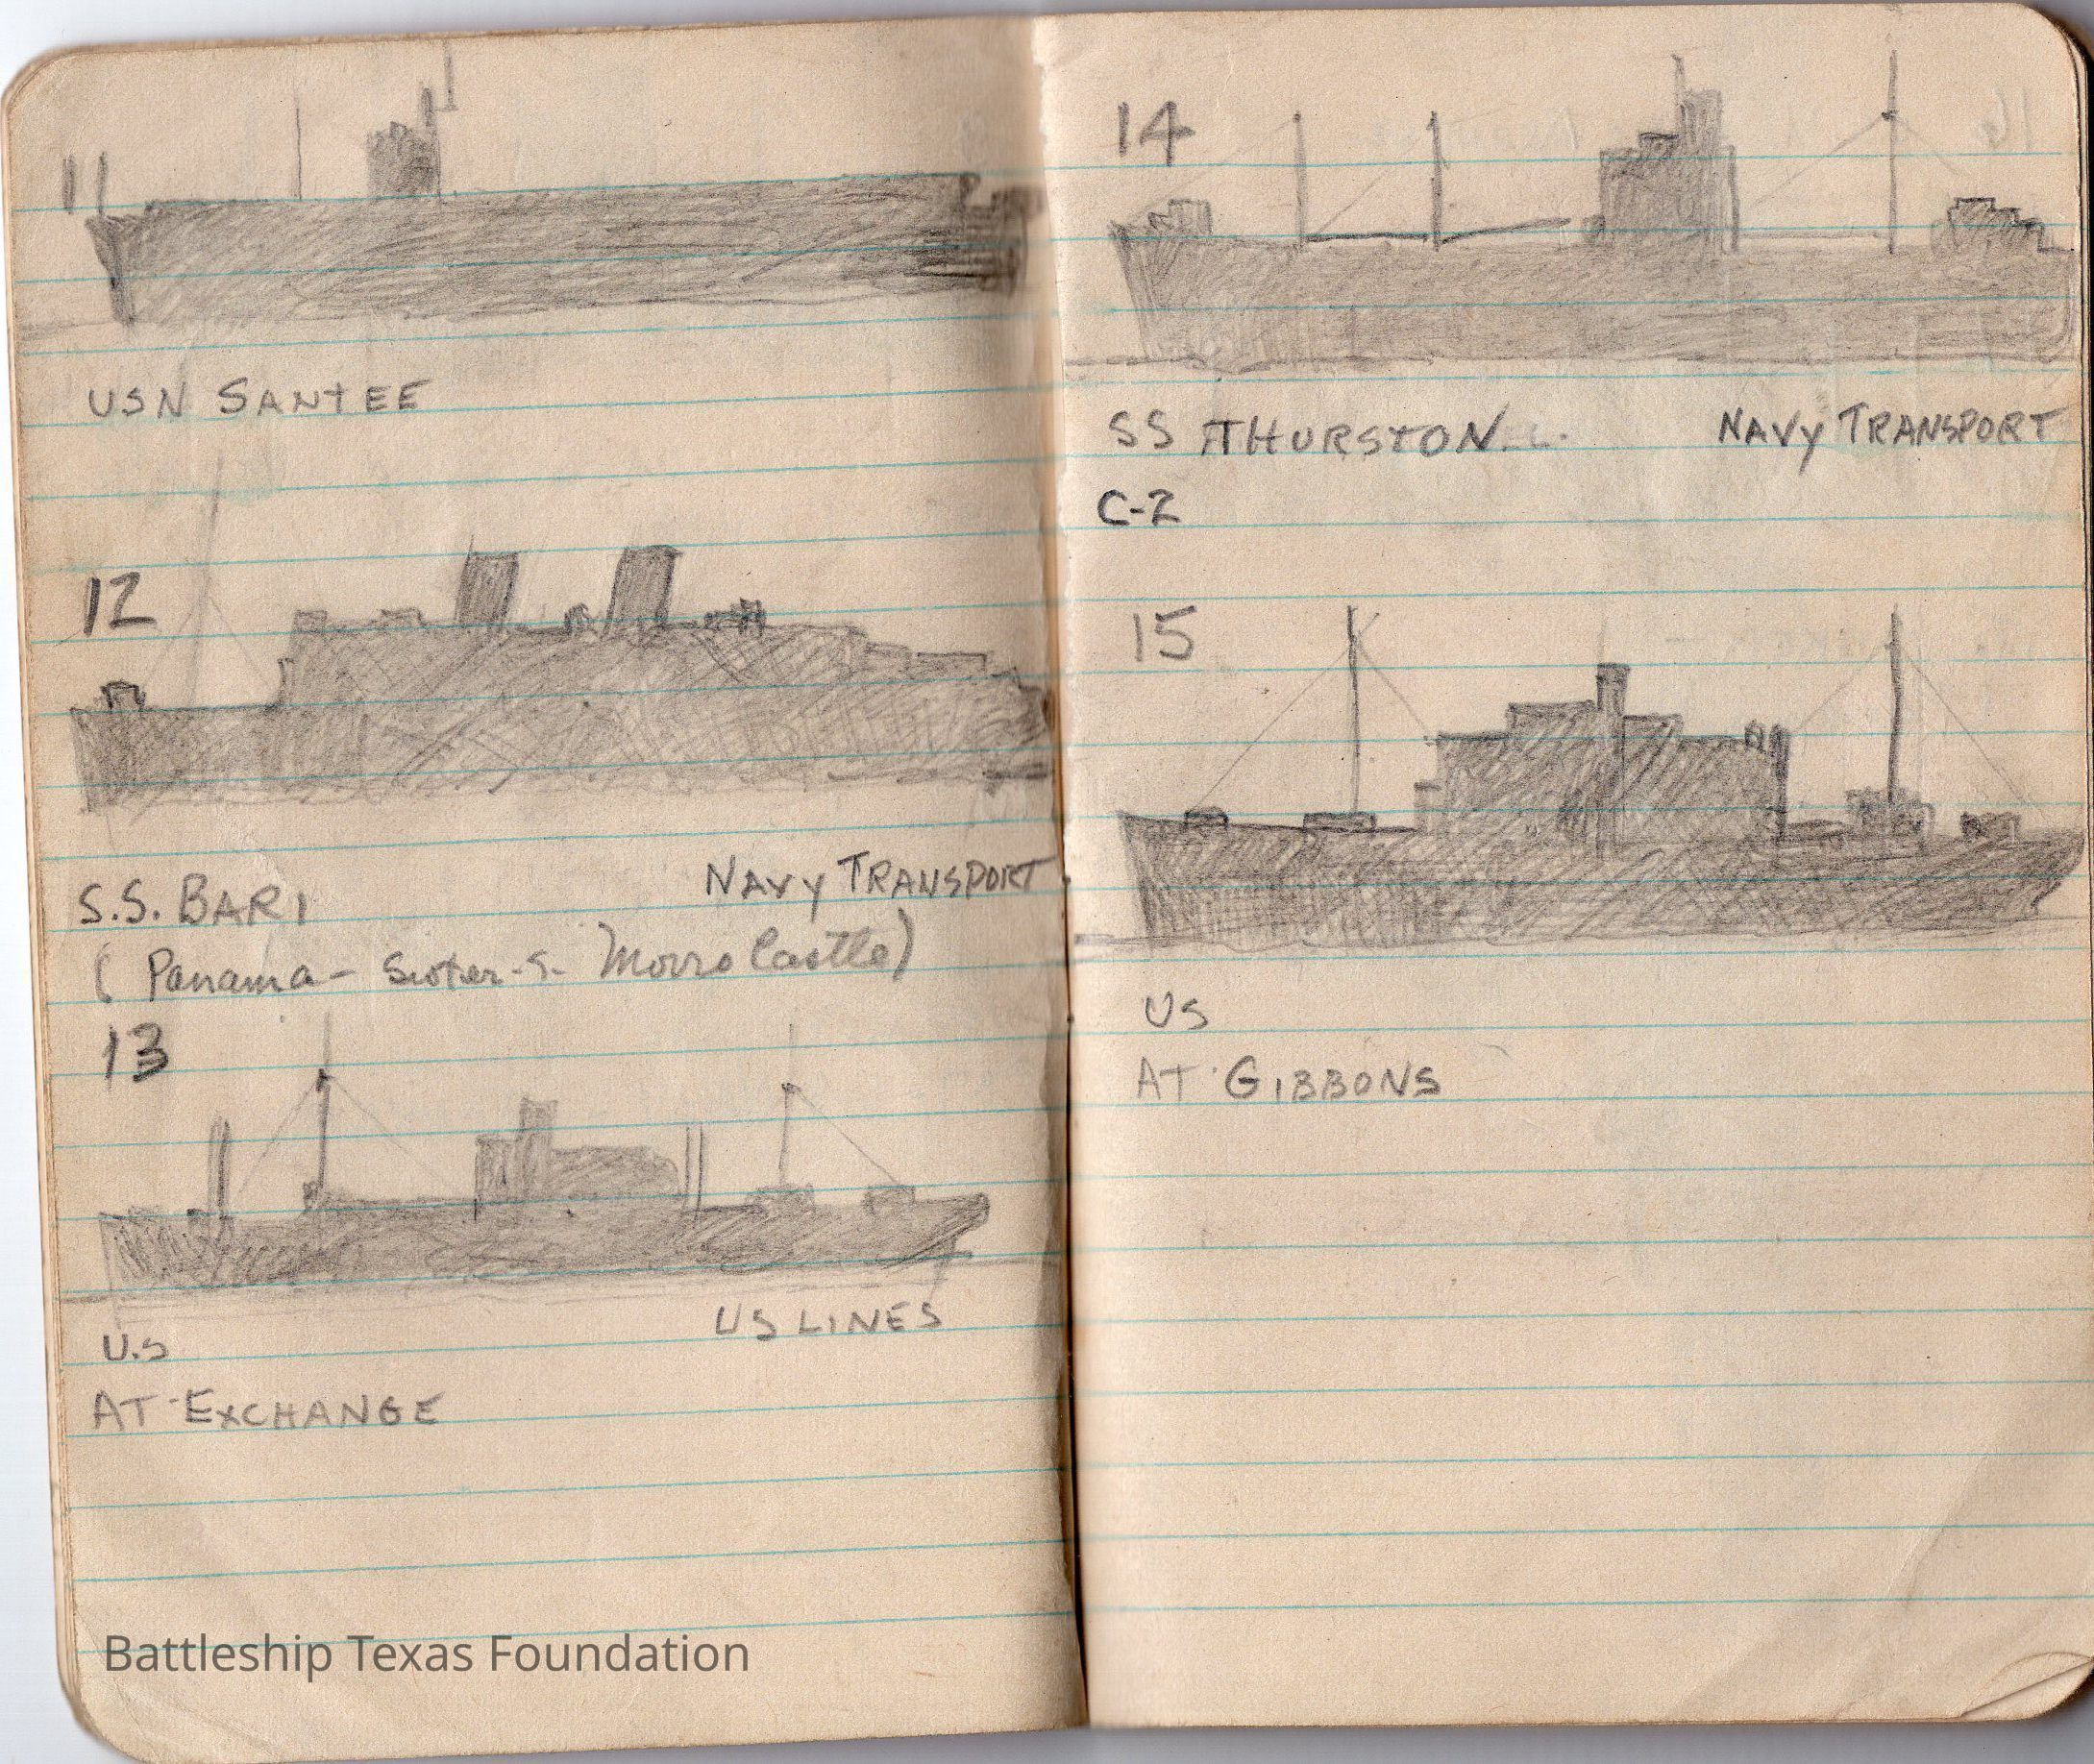 11
USN SANTEE
12
S.S. BARI NAVY TRANSPORT
( Panama - Sister-S- Morro Castle)
13
U.S US LINES
AT EXCHANGE
Battleship Texas Foundation
14
SS THURSTON NAVY TRANSPORT
C-2
15
US
AT GIBBONS